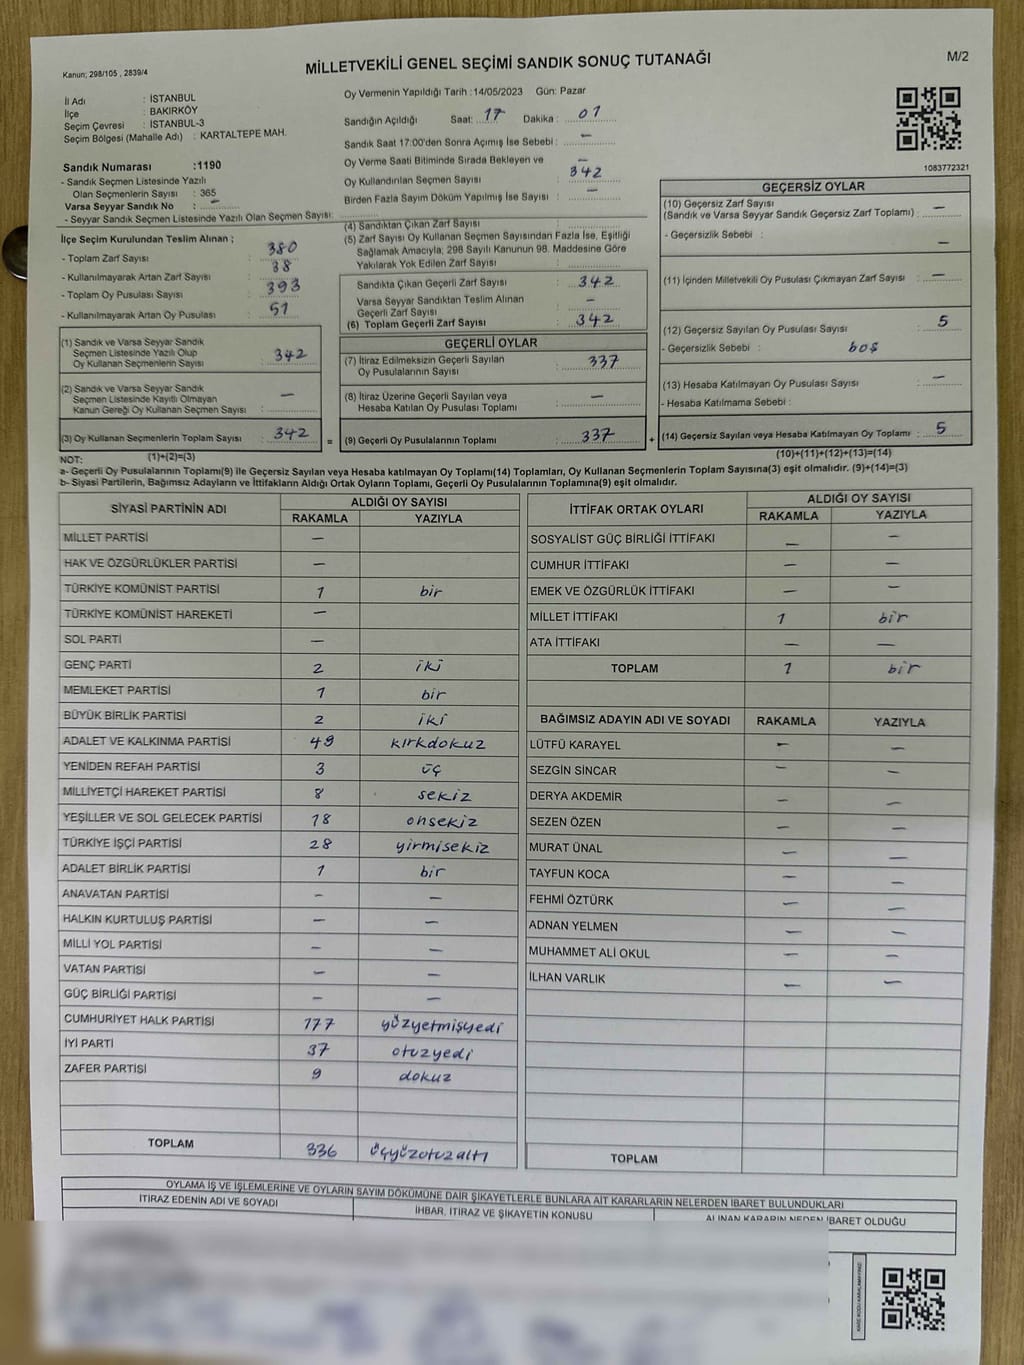 Kanun; 298/105 , 2839/4
MİLLETVEKİLİ GENEL SEÇİMİ SANDIK SONUÇ TUTANAĞI
M/2
İl Adı : İSTANBUL
İlçe : BAKIRKÖY
Seçim Çevresi : İSTANBUL-3
Seçim Bölgesi (Mahalle Adı) : KARTALTEPE MAH.
Sandık Numarası :1190
- Sandık Seçmen Listesinde Yazılı
Olan Seçmenlerin Sayısı : 365
Varsa Seyyar Sandık No : –
- Seyyar Sandık Seçmen Listesinde Yazılı Olan Seçmen Sayısı:
Oy Vermenin Yapıldığı Tarih :14/05/2023 Gün: Pazar
Sandığın Açıldığı Saat: 17 Dakika : 01
Sandık Saat 17:00'den Sonra Açımış İse Sebebi : –
Oy Verme Saati Bitiminde Sırada Bekleyen ve –
Oy Kullandırılan Seçmen Sayısı : 342
Birden Fazla Sayım Döküm Yapılmış İse Sayısı : –
1083772321
İlçe Seçim Kurulundan Teslim Alınan ;
- Toplam Zarf Sayısı : 380
- Kullanılmayarak Artan Zarf Sayısı : 38
- Toplam Oy Pusulası Sayısı : 393
- Kullanılmayarak Artan Oy Pusulası : 51
(1) Sandık ve Varsa Seyyar Sandık
Seçmen Listesinde Yazılı Olup
Oy Kullanan Seçmenlerin Sayısı : 342
(2) Sandık ve Varsa Seyyar Sandık
Seçmen Listesinde Kayıtlı Olmayan
Kanun Gereği Oy Kullanan Seçmen Sayısı : –
(3) Oy Kullanan Seçmenlerin Toplam Sayısı : 342 =
(4) Sandıktan Çıkan Zarf Sayısı :
(5) Zarf Sayısı Oy Kullanan Seçmen Sayısından Fazla İse, Eşitliği
Sağlamak Amacıyla; 298 Sayılı Kanunun 98. Maddesine Göre
Yakılarak Yok Edilen Zarf Sayısı :
Sandıkta Çıkan Geçerli Zarf Sayısı : 342
Varsa Seyyar Sandıktan Teslim Alınan
Geçerli Zarf Sayısı : –
(6) Toplam Geçerli Zarf Sayısı : 342
GEÇERLİ OYLAR
(7) İtiraz Edilmeksizin Geçerli Sayılan
Oy Pusulalarının Sayısı : 337
(8) İtiraz Üzerine Geçerli Sayılan veya
Hesaba Katılan Oy Pusulası Toplamı : –
(9) Geçerli Oy Pusulalarının Toplamı : 337 +
GEÇERSİZ OYLAR
(10) Geçersiz Zarf Sayısı
(Sandık ve Varsa Seyyar Sandık Geçersiz Zarf Toplamı) : –
- Geçersizlik Sebebi : –
(11) İçinden Milletvekili Oy Pusulası Çıkmayan Zarf Sayısı : –
(12) Geçersiz Sayılan Oy Pusulası Sayısı : 5
- Geçersizlik Sebebi : boş
(13) Hesaba Katılmayan Oy Pusulası Sayısı : –
- Hesaba Katılmama Sebebi :
(14) Geçersiz Sayılan veya Hesaba Katılmayan Oy Toplamı : 5
NOT: (1)+(2)=(3) (10)+(11)+(12)+(13)=(14)
a- Geçerli Oy Pusulalarının Toplamı(9) ile Geçersiz Sayılan veya Hesaba katılmayan Oy Toplamı(14) Toplamları, Oy Kullanan Seçmenlerin Toplam Sayısına(3) eşit olmalıdır. (9)+(14)=(3)
b- Siyasi Partilerin, Bağımsız Adayların ve İttifakların Aldığı Ortak Oyların Toplamı, Geçerli Oy Pusulalarının Toplamına(9) eşit olmalıdır.
SİYASİ PARTİNİN ADI ALDIĞI OY SAYISI
RAKAMLA YAZIYLA
MİLLET PARTİSİ –
HAK VE ÖZGÜRLÜKLER PARTİSİ –
TÜRKİYE KOMÜNİST PARTİSİ 1 bir
TÜRKİYE KOMÜNİST HAREKETİ –
SOL PARTİ –
GENÇ PARTİ 2 iki
MEMLEKET PARTİSİ 1 bir
BÜYÜK BİRLİK PARTİSİ 2 iki
ADALET VE KALKINMA PARTİSİ 49 kırkdokuz
YENİDEN REFAH PARTİSİ 3 üç
MİLLİYETÇİ HAREKET PARTİSİ 8 sekiz
YEŞİLLER VE SOL GELECEK PARTİSİ 18 onsekiz
TÜRKİYE İŞÇİ PARTİSİ 28 yirmisekiz
ADALET BİRLİK PARTİSİ 1 bir
ANAVATAN PARTİSİ – –
HALKIN KURTULUŞ PARTİSİ – –
MİLLİ YOL PARTİSİ – –
VATAN PARTİSİ – –
GÜÇ BİRLİĞİ PARTİSİ – –
CUMHURİYET HALK PARTİSİ 177 yüzyetmişyedi
İYİ PARTİ 37 otuzyedi
ZAFER PARTİSİ 9 dokuz
TOPLAM 336 üçyüzotuzaltı
İTTİFAK ORTAK OYLARI ALDIĞI OY SAYISI
RAKAMLA YAZIYLA
SOSYALİST GÜÇ BİRLİĞİ İTTİFAKI – –
CUMHUR İTTİFAKI – –
EMEK VE ÖZGÜRLÜK İTTİFAKI – –
MİLLET İTTİFAKI 1 bir
ATA İTTİFAKI – –
TOPLAM 1 bir
BAĞIMSIZ ADAYIN ADI VE SOYADI RAKAMLA YAZIYLA
LÜTFÜ KARAYEL – –
SEZGİN SİNCAR – –
DERYA AKDEMİR – –
SEZEN ÖZEN – –
MURAT ÜNAL – –
TAYFUN KOCA – –
FEHMİ ÖZTÜRK – –
ADNAN YELMEN – –
MUHAMMET ALİ OKUL – –
İLHAN VARLIK – –
TOPLAM
OYLAMA İŞ VE İŞLEMLERİNE VE OYLARIN SAYIM DÖKÜMÜNE DAİR ŞİKAYETLERLE BUNLARA AİT KARARLARIN NELERDEN İBARET BULUNDUKLARI
İTİRAZ EDENİN ADI VE SOYADI İHBAR, İTİRAZ VE ŞİKAYETİN KONUSU ALINAN KARARIN NEDEN İBARET OLDUĞU